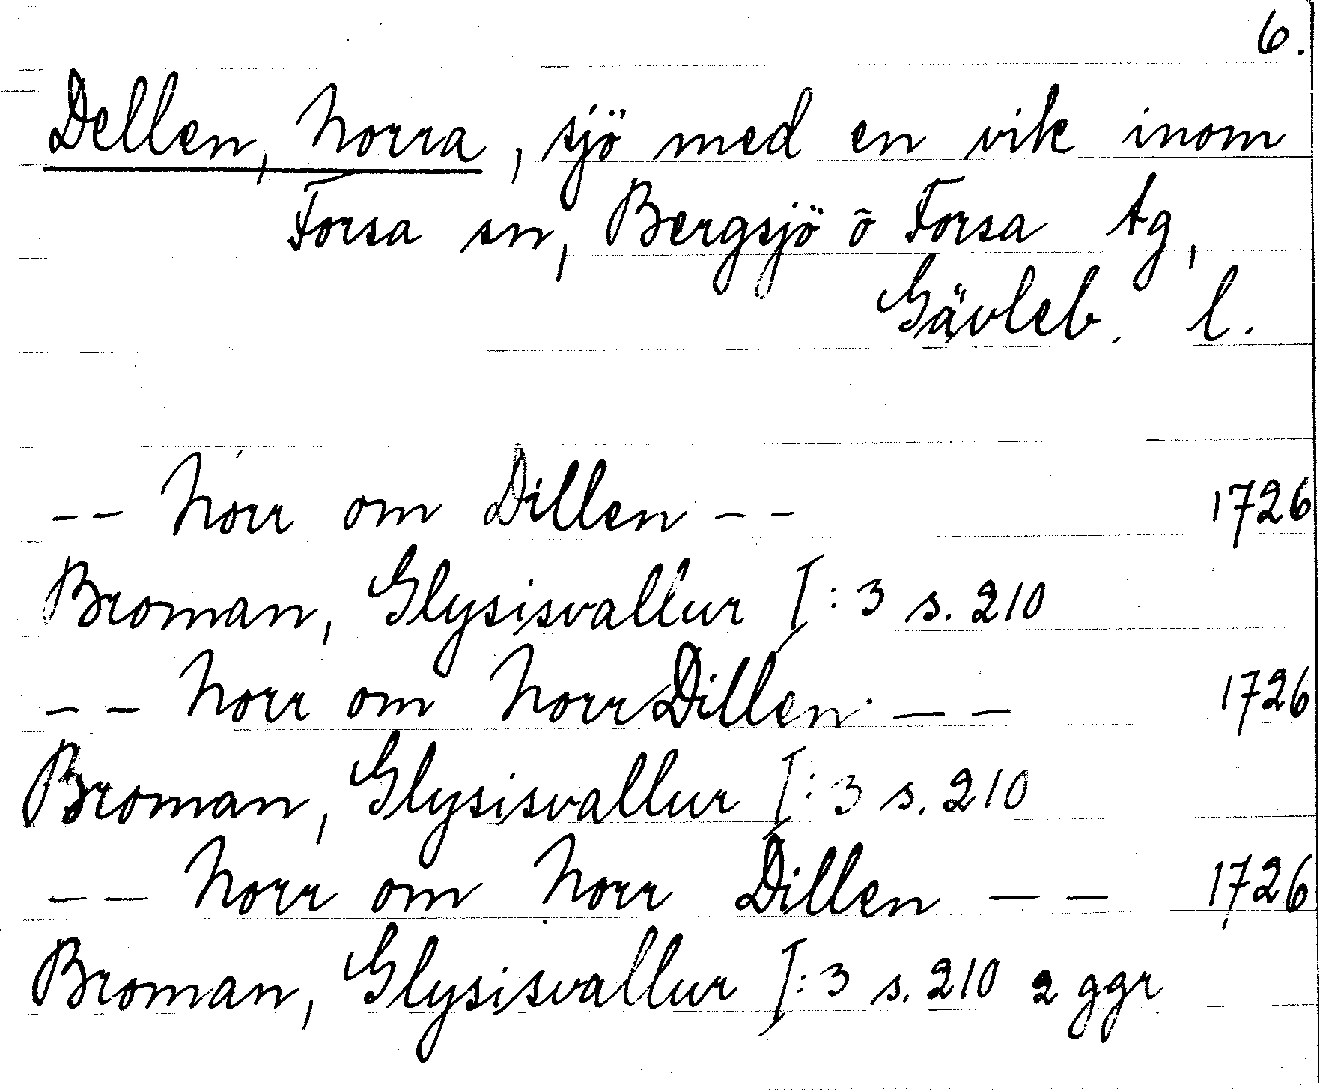 6.
Dellen, Norra, sjö med en vik inom
Forsa sn, Bergsjö o Forsa tg,
Gävleb. l.
-- Norr om Dillen -- 1726
Broman, Glysisvallur I:3 s. 210
-- Norr om NorrDillen -- 1726
Broman, Glysisvallur I:3 s. 210
-- Norr om Norr Dillen -- 1726
Broman, Glysisvallur I:3 s. 210 2 ggr